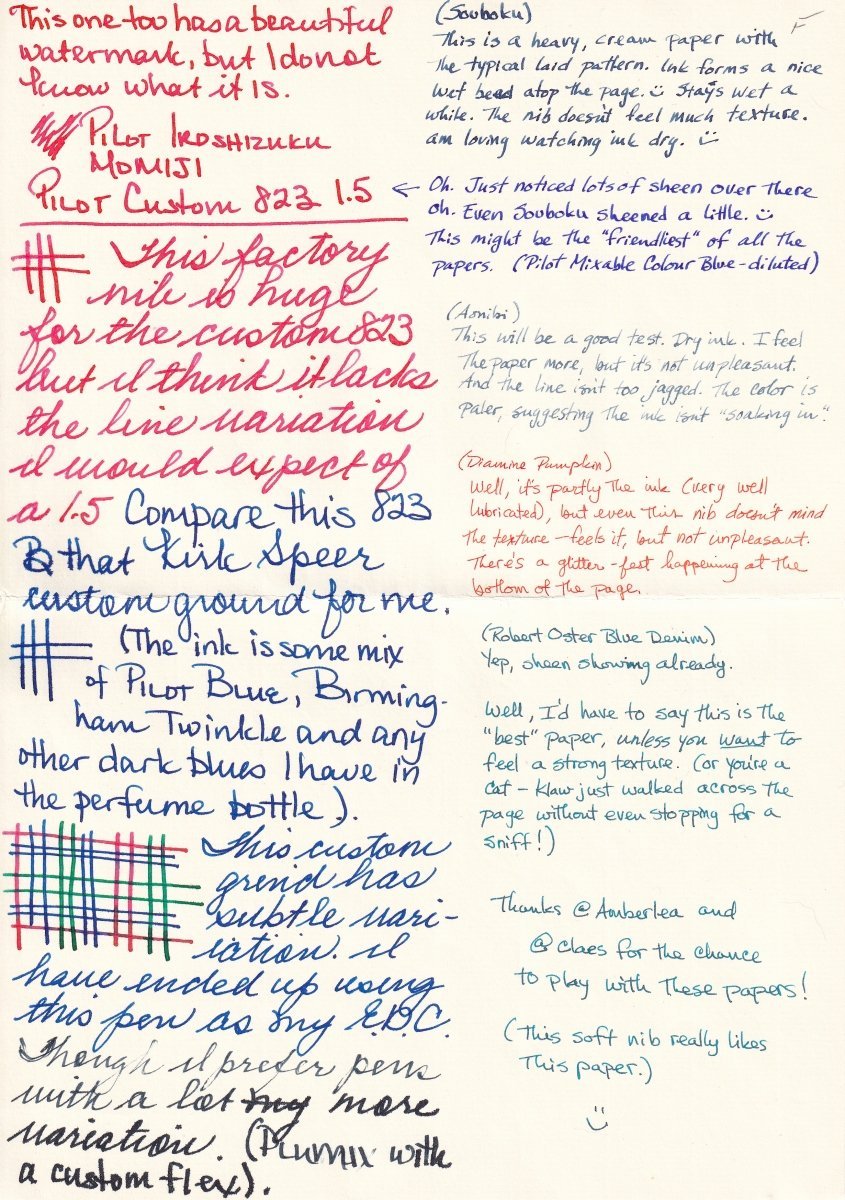 This one too has a beautiful
watermark, but I do not
know what it is.
PILOT IROSHIZUKU
MOMIJI
PILOT Custom 823 1.5
This factory
nib is huge
for the custom 823
but I think it lacks
the line variation
I would expect of
a 1.5 Compare this 823
to that Kirk Speer
custom ground for me.
(The ink is some mix
of PILOT BLUE, Birming-
ham Twinkle and any
other dark blues I have in
the perfume bottle).
This custom
grind has
subtle vari-
iation. I
have ended up using
this pen as my E.D.C.
Though I prefer pens
with a lot my more
variation. (Plumix with
a custom flex).
F
(Souboku)
This is a heavy, cream paper with
the typical laid pattern. Ink forms a nice
wet bead atop the page. Stays wet a
while. The nib doesn't feel much texture.
am loving watching ink dry.
← Oh. Just noticed lots of sheen over there
oh. Even Souboku sheened a little.
This might be the "friendliest" of all the
papers. (Pilot Mixable Colour Blue-diluted)
(Aonibi)
This will be a good test. Dry ink. I feel
the paper more, but it's not unpleasant.
And the line isn't too jagged. The color is
paler, suggesting the ink isn't "soaking in".
(Diamine Pumpkin)
Well, it's partly the ink (very well
lubricated), but even this nib doesn't mind
the texture - feels it, but not unpleasant.
There's a glitter-fest happening at the
bottom of the page.
(Robert Oster Blue Denim)
Yep, sheen showing already.
Well, I'd have to say this is the
"best" paper, unless you want to
feel a strong texture. (or you're a
cat - Klaw just walked across the
page without even stopping for a
sniff!)
Thanks @Amberlea and
@claes for the chance
to play with these papers!
(This soft nib really likes
this paper.)